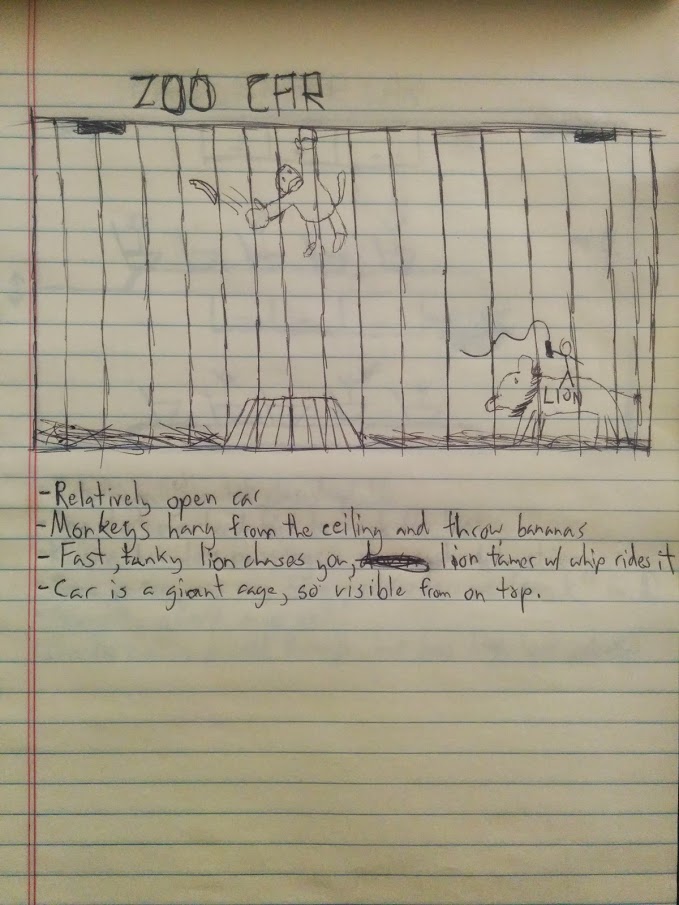 ZOO CAR
LION
-Relatively open car
-Monkeys hang from the ceiling and throw bananas
- Fast, tanky lion chases you, lion tamer w/ whip rides it
-Car is a giant cage, so visible from on top.